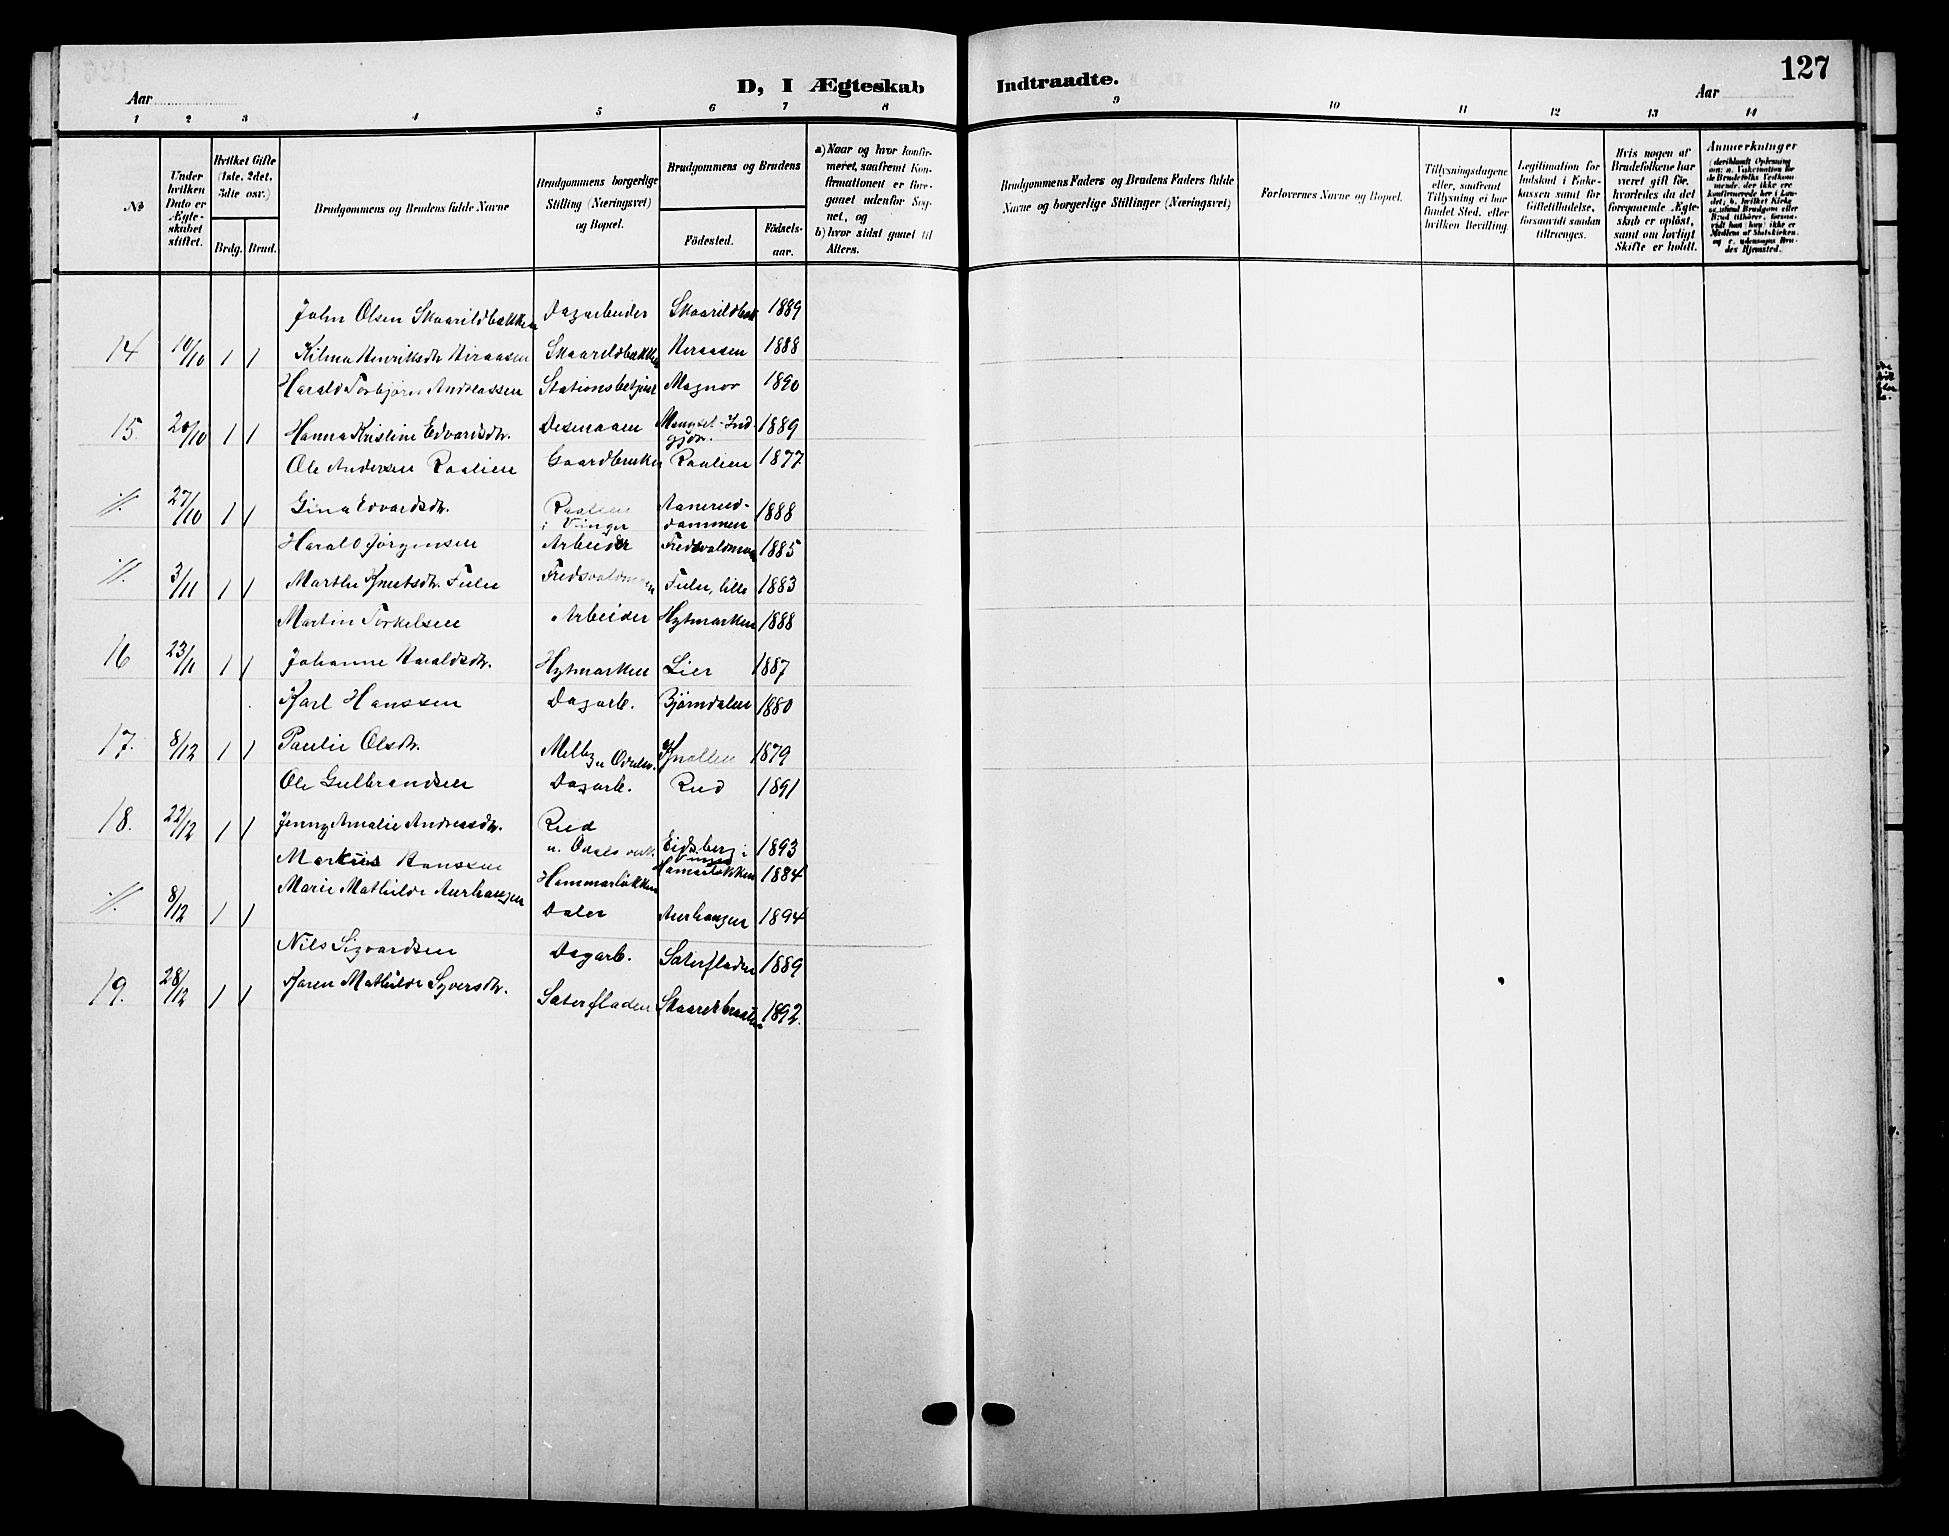 127
D, I Ægteskab Indtraadte.
Aar
Aar
1 2 3 4 5 6 7 8 9 10 11 12 13 14
№
Under hvilken Dato er Ægteskabet stiftet.
Hvilket Gifte (1ste, 2det, 3die osv.)
Brdg. Brud.
Brudgommens og Brudens fulde Navne
Brudgommens borgerlige Stilling (Næringsvei) og Bopæl.
Brudgommens og Brudens
Födested.
Födselsaar.
a) Naar og hvor konfirmeret, saafremt Konfirmationen er foregaaet udenfor Sognet, og
b) hvor sidst gaaet til Alters.
Brudgommens Faders og Brudens Faders fulde Navne og borgerlige Stillinger (Næringsvei)
Forlovernes Navne og Bopæl.
Tillysningsdagene eller, saafremt Tillysning ei har fundet Sted, efter hvilken Bevilling.
Legitimation for Indskud i Enkekassen samt for Giftetilladelse, forsaavidt saadan tiltrænges.
Hvis nogen af Brudefolkene har været gift för, hvorledes da det foregaaende Ægteskab er oplöst, samt om lovligt Skifte er holdt.
Anmærkninger
John Olsen Skaarildbakken Dagarbeider Skaarildbak 1889
14 10/10 1 1 Kilma Henriksdtr. Heraasen Skaarildbakken Heraasen 1888
Harald Torbjørn Andreassen Stationsbetjent Magnor 1890
15. 20/10 1 1 Hanna Kristine Edvardsdtr. Disenaaen 1889
Ole Andersen Raalien Gaardbruker Raalien 1877
27/10 1 1 Gina Edvardsdtr. Raalien i Vinger Aanerud-dammen 1888
Harald Jørgensen Arbeider Fredsvoldmoen 1885
3/11 1 1 Marthe Knutsdtr. Fuler Fredsvoldmoen Fuler, lille 1883
Martin Torkelsen Arbeider Hytmarken 1888
16 23/11 1 1 Johanne Haraldsdtr. Hytmarken Lier 1887
Karl Hanssen Dagarb. Bjørndalen 1880
17. 8/12 1 1 Paulie Olsdtr. Melby Knollen 1879
Ole Gulbrandsen Dagarb. Rud 1891
18. 22/12 1 1 Jenny Amalie Andreasdtr. Rud u. Odals verk. Eidsberg i Vinger 1893
Markus Hanssen Hammerløkken 1884
8/12 1 1 Marie Mathilde Aurhaugen Daler Aurhaugen 1894
Nils Sigvardsen Dagarb. Sæterfladen 1889
19. 28/12 1 1 Karen Mathilde Syversdtr. Sæterfladen 1892.